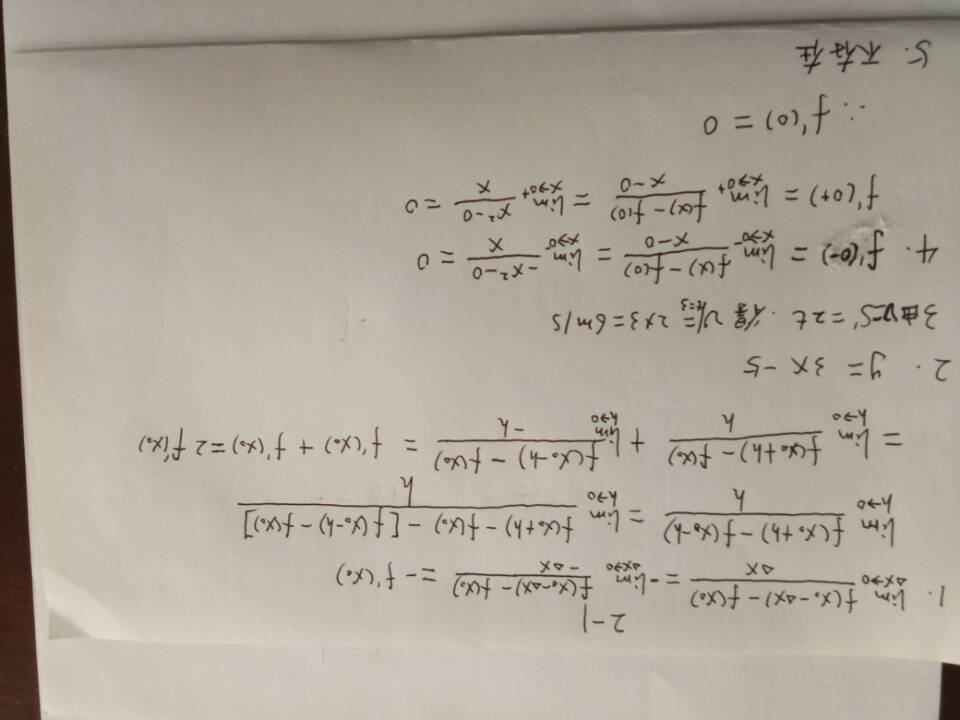 2-1
1. lim_{Δx→0} \frac{f(x₀-Δx)-f(x₀)}{Δx} = -lim_{Δx→0} \frac{f(x₀-Δx)-f(x₀)}{-Δx} = -f'(x₀)
lim_{h→0} \frac{f(x₀+h)-f(x₀-h)}{h} = lim_{h→0} \frac{f(x₀+h)-f(x₀)-[f(x₀-h)-f(x₀)]}{h}
= lim_{h→0} \frac{f(x₀+h)-f(x₀)}{h} + lim_{h→0} \frac{f(x₀-h)-f(x₀)}{-h} = f'(x₀)+f'(x₀)=2f'(x₀)
2. y = 3x-5
3 由V=S'=2t. 得 V|_{t=3}=2×3=6m/s
4. f'(0-) = lim_{x→0-} \frac{f(x)-f(0)}{x-0} = lim_{x→0-} \frac{-x²-0}{x} = 0
f'(0+) = lim_{x→0+} \frac{f(x)-f(0)}{x-0} = lim_{x→0+} \frac{x²-0}{x} = 0
∴ f'(0) = 0
5. 不存在